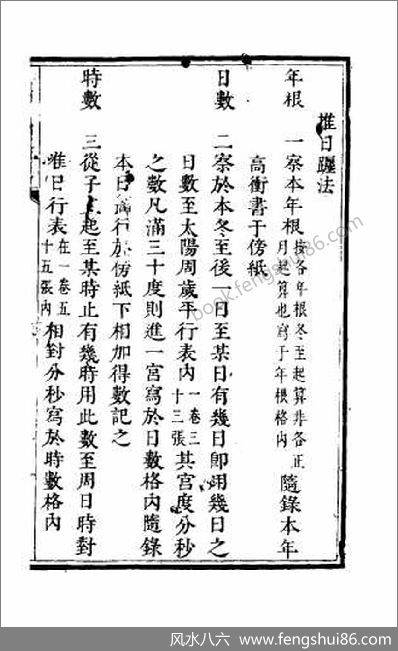 推日躔法
年根　一察本年根按各年根冬至起算非各正月起算也寫于年根格内隨錄本年
高衡書于傍紙
日數　二察於本冬至後一日至某日有幾日卽用幾日之
日數至太陽周歲平行表内一卷三十三張其宮度分秒
之數凡滿三十度則進一宮寫於日數格内隨錄
本日高行於傍紙下相加得數記之
時數　三從子正起至某時止有幾時用此數至周日時對
日行表在一卷五十五張内相對分秒寫於時數格内
book.fengshui86.com
风水八六 www.fengshui86.com